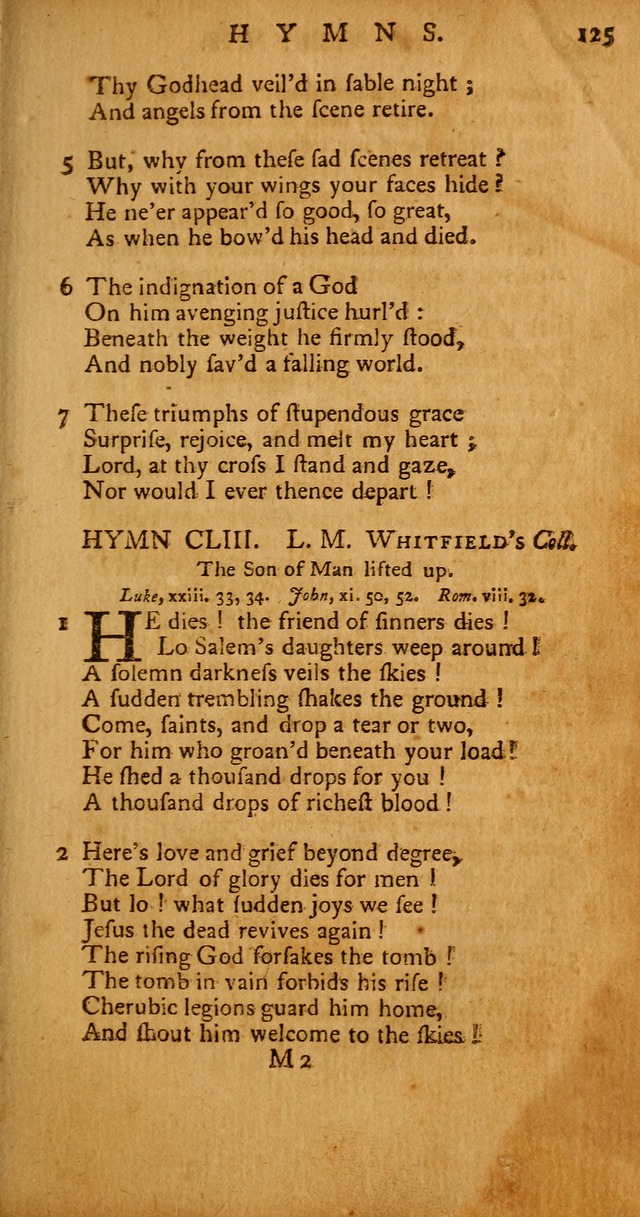 HYMNS. 125
Thy Godhead veil'd in ſable night ;
And angels from the ſcene retire.
5 But, why from theſe ſad ſcenes retreat ?
Why with your wings your faces hide ?
He ne'er appear'd ſo good, ſo great,
As when he bow'd his head and died.
6 The indignation of a God
On him avenging juſtice hurl'd :
Beneath the weight he firmly ſtood,
And nobly ſav'd a falling world.
7 Theſe triumphs of ſtupendous grace
Surpriſe, rejoice, and melt my heart ;
Lord, at thy croſs I ſtand and gaze,
Nor would I ever thence depart !
HYMN CLIII. L. M. WHITFIELD'S Coll.
The Son of Man lifted up.
Luke, xxiii. 33, 34. John, xi. 50, 52. Rom. viii. 32.
1 HE dies ! the friend of ſinners dies !
Lo Salem's daughters weep around !
A ſolemn darkneſs veils the ſkies !
A ſudden trembling ſhakes the ground !
Come, ſaints, and drop a tear or two,
For him who groan'd beneath your load !
He ſhed a thouſand drops for you !
A thouſand drops of richeſt blood !
2 Here's love and grief beyond degree,
The Lord of glory dies for men !
But lo ! what ſudden joys we ſee !
Jeſus the dead revives again !
The riſing God forſakes the tomb !
The tomb in vain forbids his riſe !
Cherubic legions guard him home,
And ſhout him welcome to the ſkies !
M 2